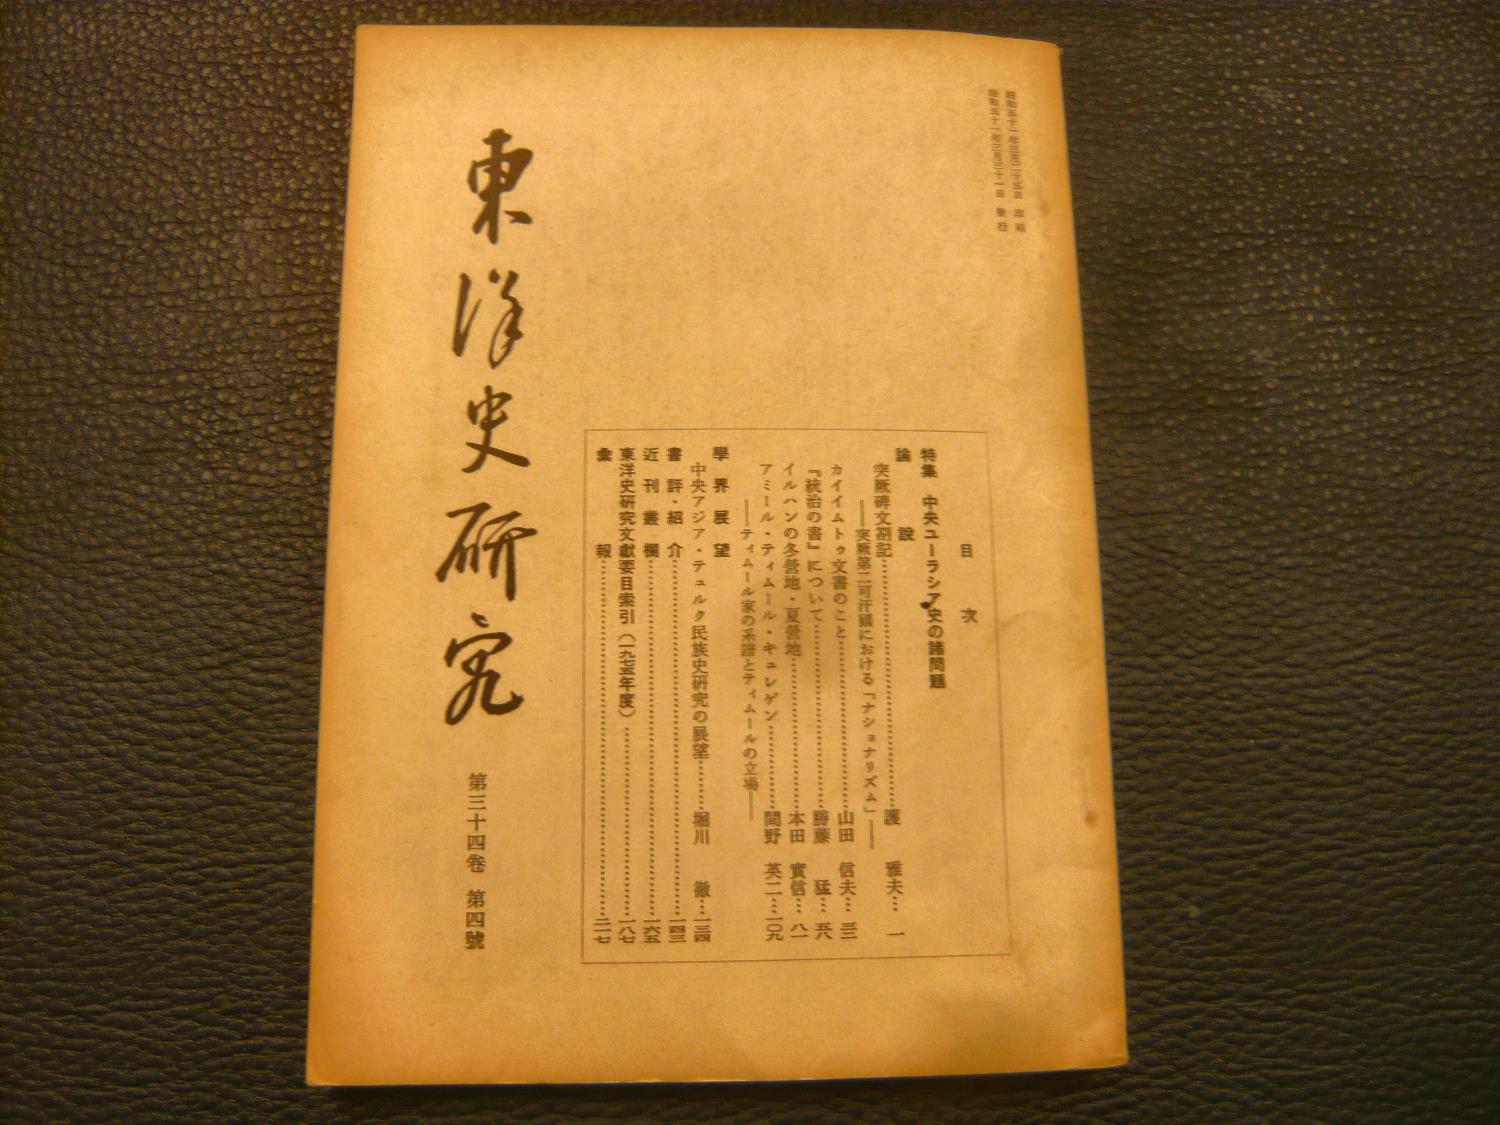 昭和五十一年三月二十五日 印刷
昭和五十一年三月三十一日 發行
目次
特集 中央ユーラシア史の諸問題
論說
突厥碑文箚記……護 雅夫…一
——突厥第二可汗國における「ナショナリズム」——
カイイムトゥ文書のこと……山田 信夫…三二
『統治の書』について……勝藤 猛…五八
イルハンの冬營地・夏營地……本田 實信…八一
アミール・ティムール・キュレゲン……間野 英二…一〇九
——ティムール家の系譜とティムールの立場——
學界展望
中央アジア・テュルク民族史硏究の展望……堀川 徹…一三四
書評・紹介……一四三
近刊叢欄……一六五
東洋史硏究文獻要目索引(一九七五年度)……一八七
彙報……二一七
東洋史研究
第三十四卷 第四號